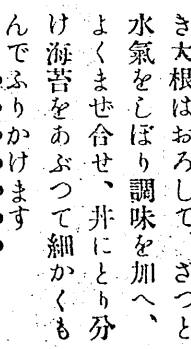 き大根はおろして、ざつと
水氣をしぼり調味を加へ、
よくまぜ合せ、丼にとり分
け海苔をあぶつて細かくも
んでふりかけます